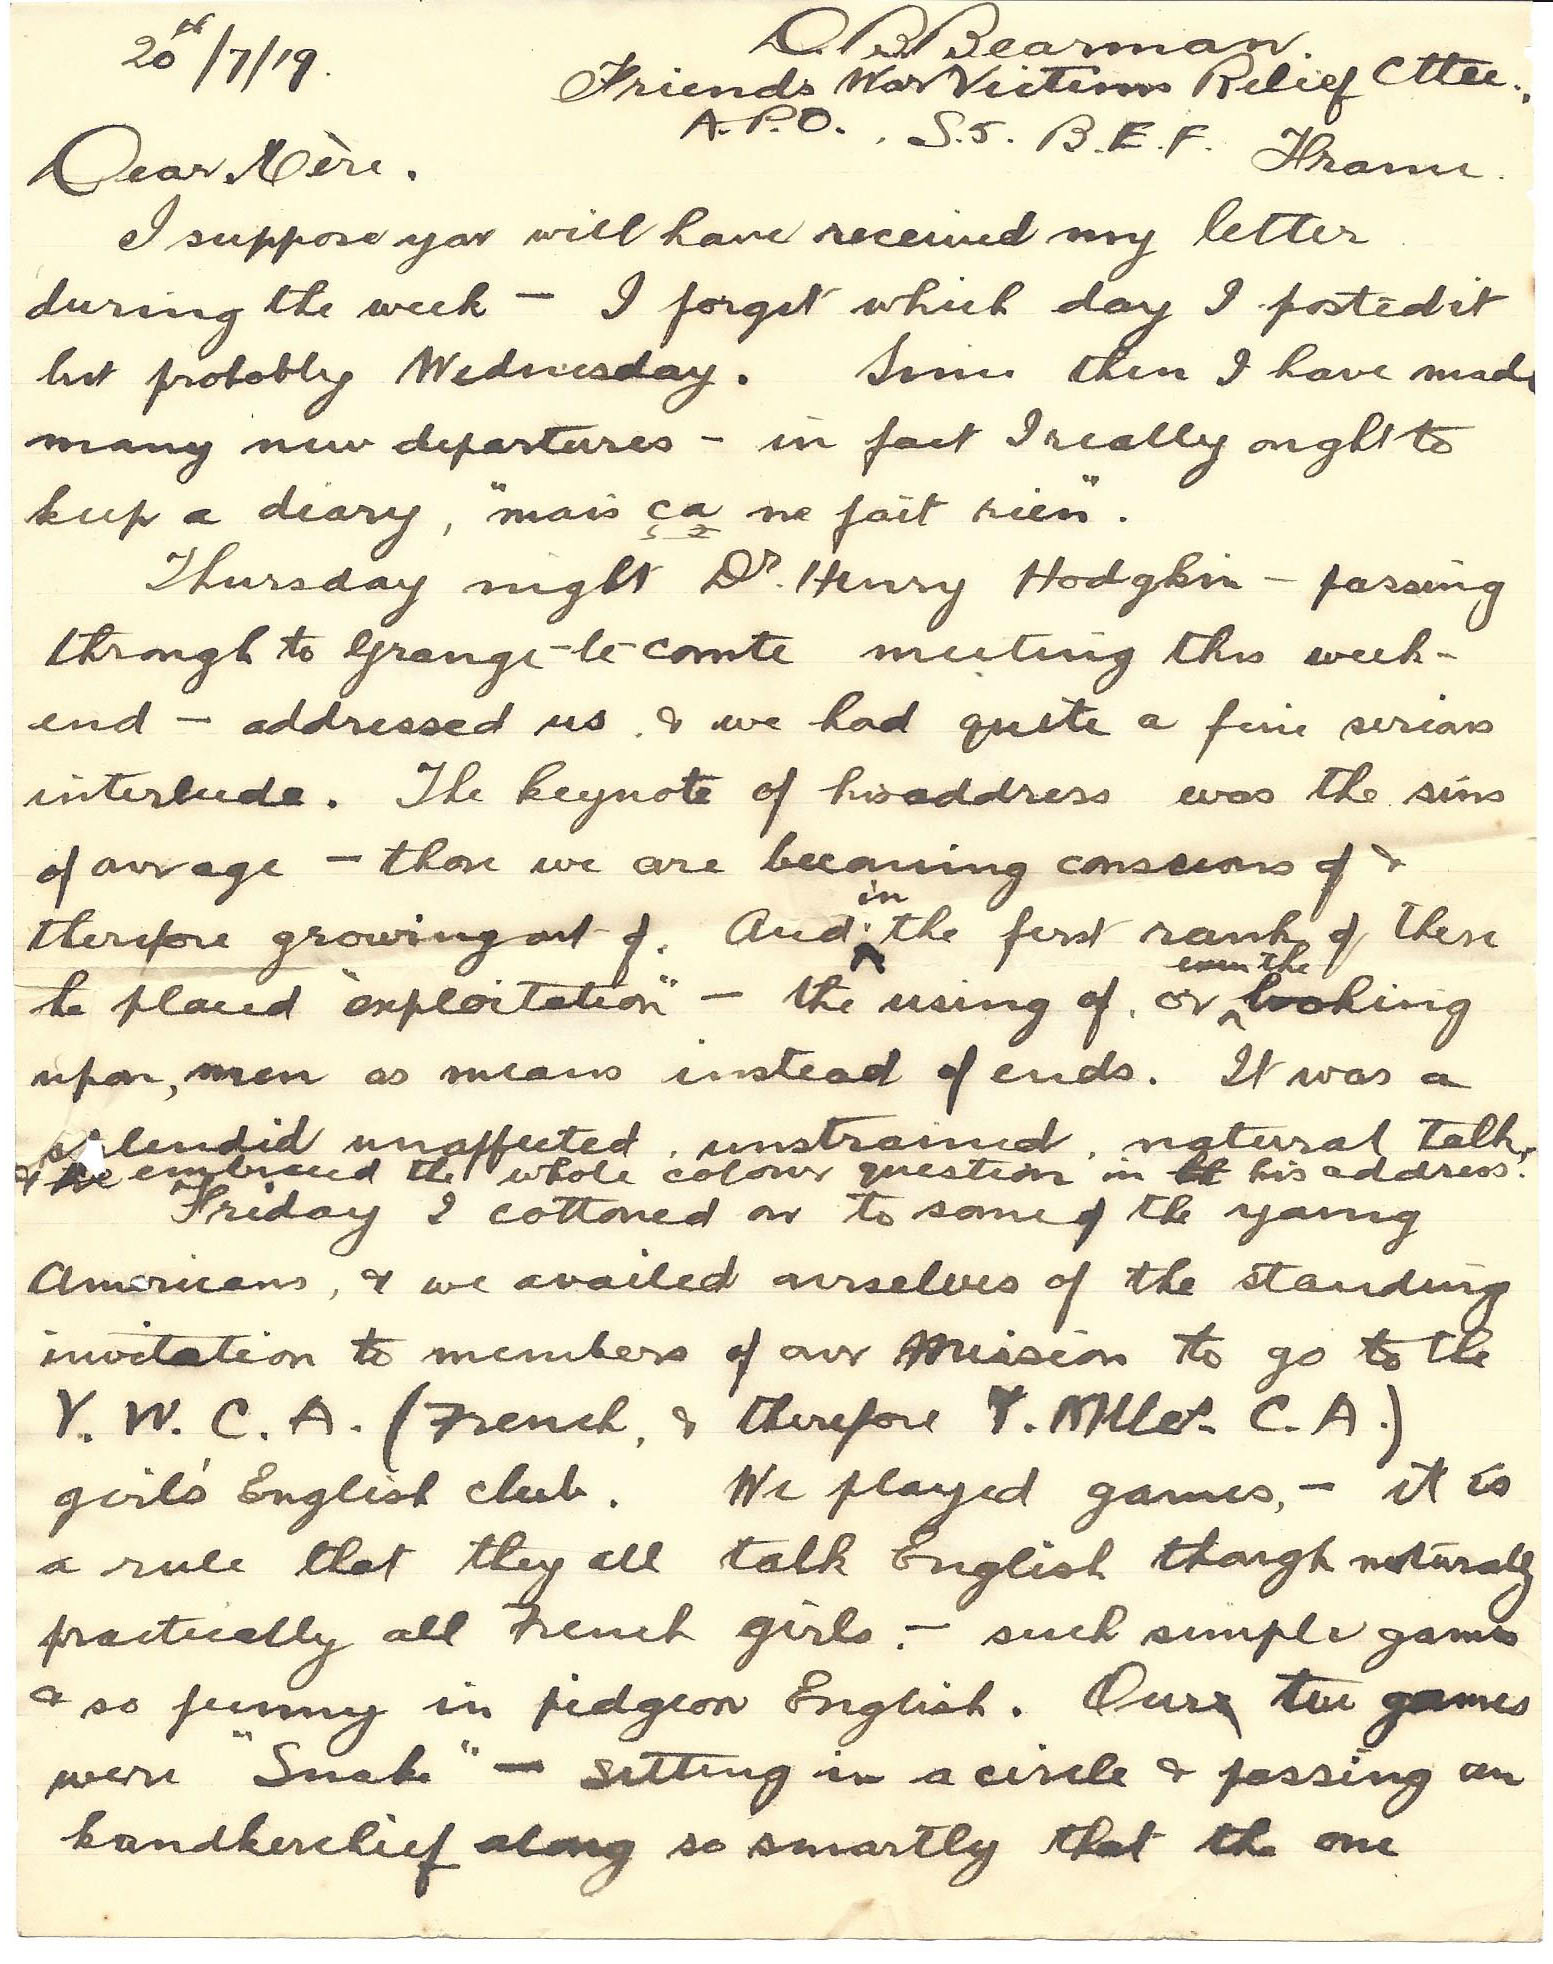 20th/7/19.
D. B. Bearman.
Friends War Victims Relief Cttee.,
A.P.O., S.5. B.E.F. France.
Dear Mère.
I suppose you will have received my letter
during the week – I forget which day I posted it
but probably Wednesday. Since then I have made
many new departures – in fact I really ought to
keep a diary, "mais ça ne fait rien".
Thursday night Dr. Henry Hodgkin – passing
through to Grange-le-comte meeting this week-
end – addressed us, & we had quite a fine serious
interlude. The keynote of his address was the sins
of our age – those we are becoming conscious of &
therefore growing out of. And in the first rank of these
he placed "exploitation" – the using of, or even the looking
upon, men as means instead of ends. It was a
splendid unaffected, unstrained, natural talk,
& he embraced the whole colour question in his address.
Friday I cottoned on to some of the young
Americans, & we availed ourselves of the standing
invitation to members of our Mission to go to the
Y. W. C. A. (French, & therefore Y. Mlle. C. A.)
girls' English club. We played games, – it is
a rule that they all talk English though naturally
practically all French girls – such simple games
& so funny in pidgeon English. Our two games
were "Snake" – sitting in a circle & passing an
handkerchief along so smartly that the one